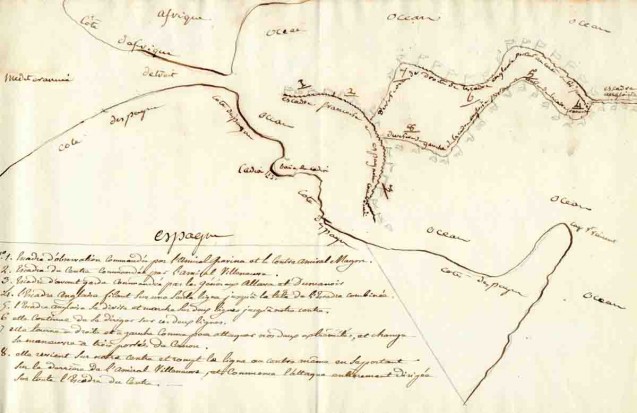 afrique
Océan
Océan
Océan
Côte
d'afrique
détroit
Mediterannée
Côte
despagne
Côte despagne
Océan
Océan
Océan
escadre francaise
1
2
3
4
5
6
8
escadre
anglaise
Cadix
Baie de Cadix
Côte
despagne
Océan
Océan
Océan
cap St Vincent
Côte despagne
espagne
N° 1. Escadre d'observation commandée par l'Amiral Gravina et le Contre amiral Magon.
2. Escadre du Centre Commandée par l'amiral Villeneuve.
3. Escadre d'avant garde commandée par les généraux Allava et Dumanoir
4. l'Escadre anglaise filant sur une seule ligne jusqu'à la tête de l'Escadre combinée.
5. l'Escadre anglaise se divise et marche sur deux lignes jusqu'à notre centre.
6 elle continue de se diriger sur ces deux lignes.
7 elle tourne à droite et à gauche comme pour attaquer nos deux extrémités, et change
sa manœuvre à très portée du Canon.
8. elle revient sur notre centre et rompt la ligne au centre même en se portant
sur le derrière de l'Amiral Villeneuve, et Commence l'attaque entièrement dirigée
sur toute l'Escadre du Centre.